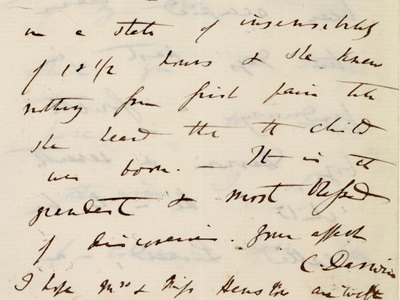 in a state of insensibility
of 1 & 1/2 hours & she knew
nothing from first pain till
she heard that the child
was born. — It is the
grandest & most blessed
of discoveries. Your affect
C. Darwin
I hope Mrs & Miss Henslow are with